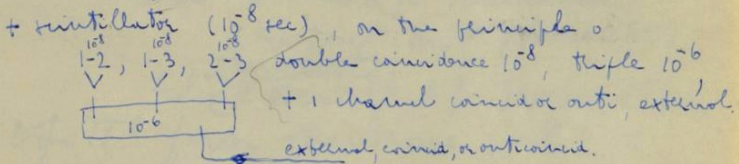 + scintillator (10⁻⁸ sec), on the principle o
10⁻⁸ 10⁻⁸ 10⁻⁸
1-2, 1-3, 2-3 double coincidence 10⁻⁸, triple 10⁻⁶,
+ 1 channel coincid or anti, external.
10⁻⁶
external, coincid, or anticoincid.